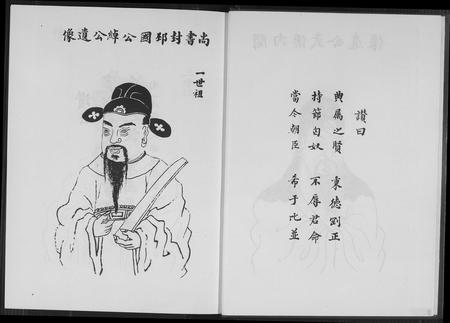 讚曰
典屬之賢 秉德剛正
持節匈奴 不辱君命
當今朝臣 希于比並
尚書封邳國公綽公遺像
一世祖